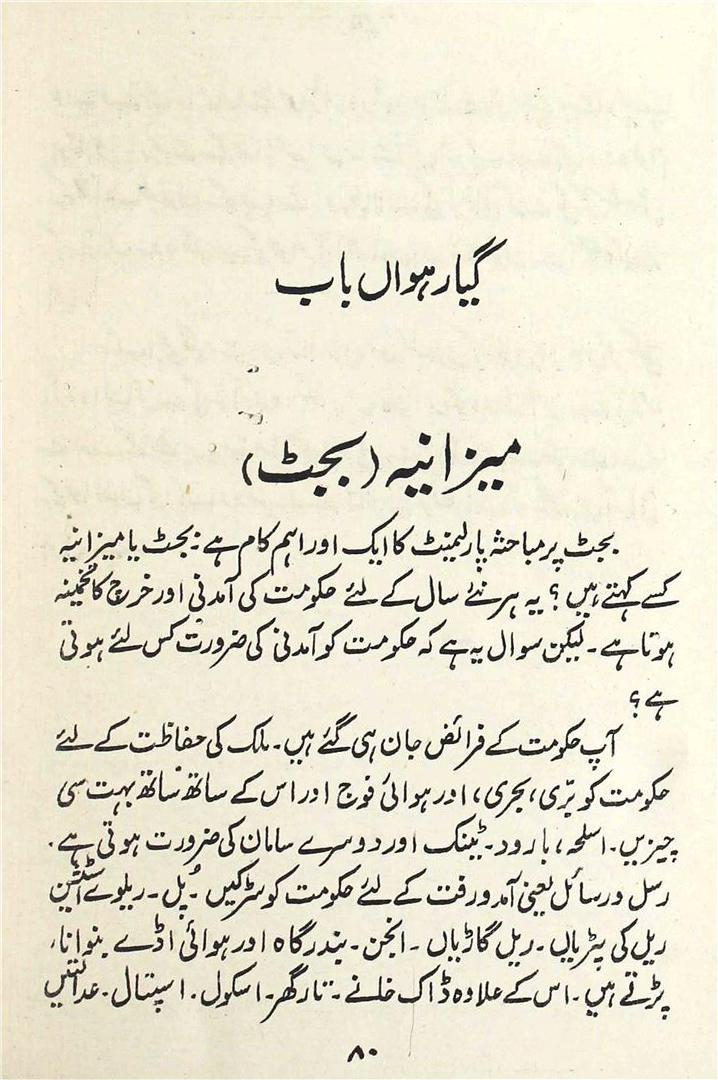 گیارہواں باب
میزانیہ (بجٹ)
بجٹ پر مباحثہ پارلیمنٹ کا ایک اور اہم کام ہے۔ بجٹ یا میزانیہ
کسے کہتے ہیں؟ یہ ہر نئے سال کے لئے حکومت کی آمدنی اور خرچ کا تخمینہ
ہوتا ہے۔ لیکن سوال یہ ہے کہ حکومت کو آمدنی کی ضرورت کس لئے ہوتی
ہے؟
آپ حکومت کے فرائض جان ہی گئے ہیں۔ ملک کی حفاظت کے لئے
حکومت کو برّی، بحری، اور ہوائی فوج اور اس کے ساتھ ساتھ بہت سی
چیزیں۔ اسلحہ، بارود۔ ٹینک اور دوسرے سامان کی ضرورت ہوتی ہے۔
رسل و رسائل یعنی آمد و رفت کے لئے حکومت کو سڑکیں۔ پُل۔ ریلوے اسٹیشن
ریل کی پٹریاں۔ ریل گاڑیاں۔ انجن۔ بندرگاہ اور ہوائی اڈے بنوانا،
پڑتے ہیں۔ اس کے علاوہ ڈاک خانے۔ تار گھر۔ اسکول۔ اسپتال۔ عدالتیں
۸۰